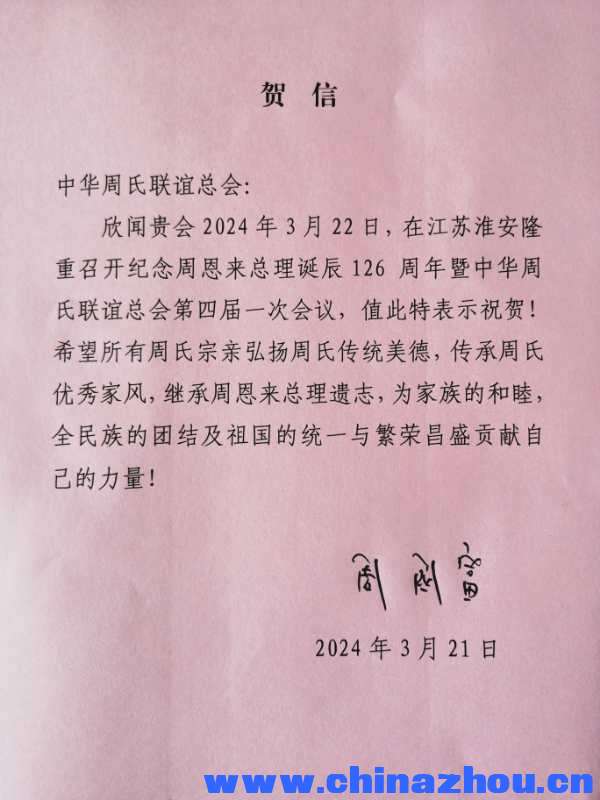 贺 信
中华周氏联谊总会:
欣闻贵会2024年3月22日，在江苏淮安隆
重召开纪念周恩来总理诞辰126 周年暨中华周
氏联谊总会第四届一次会议，值此特表示祝贺！
希望所有周氏宗亲弘扬周氏传统美德，传承周氏
优秀家风，继承周恩来总理遗志，为家族的和睦，
全民族的团结及祖国的统一与繁荣昌盛贡献自
己的力量！
周
2024年3月21日
www.chinazhou.cn